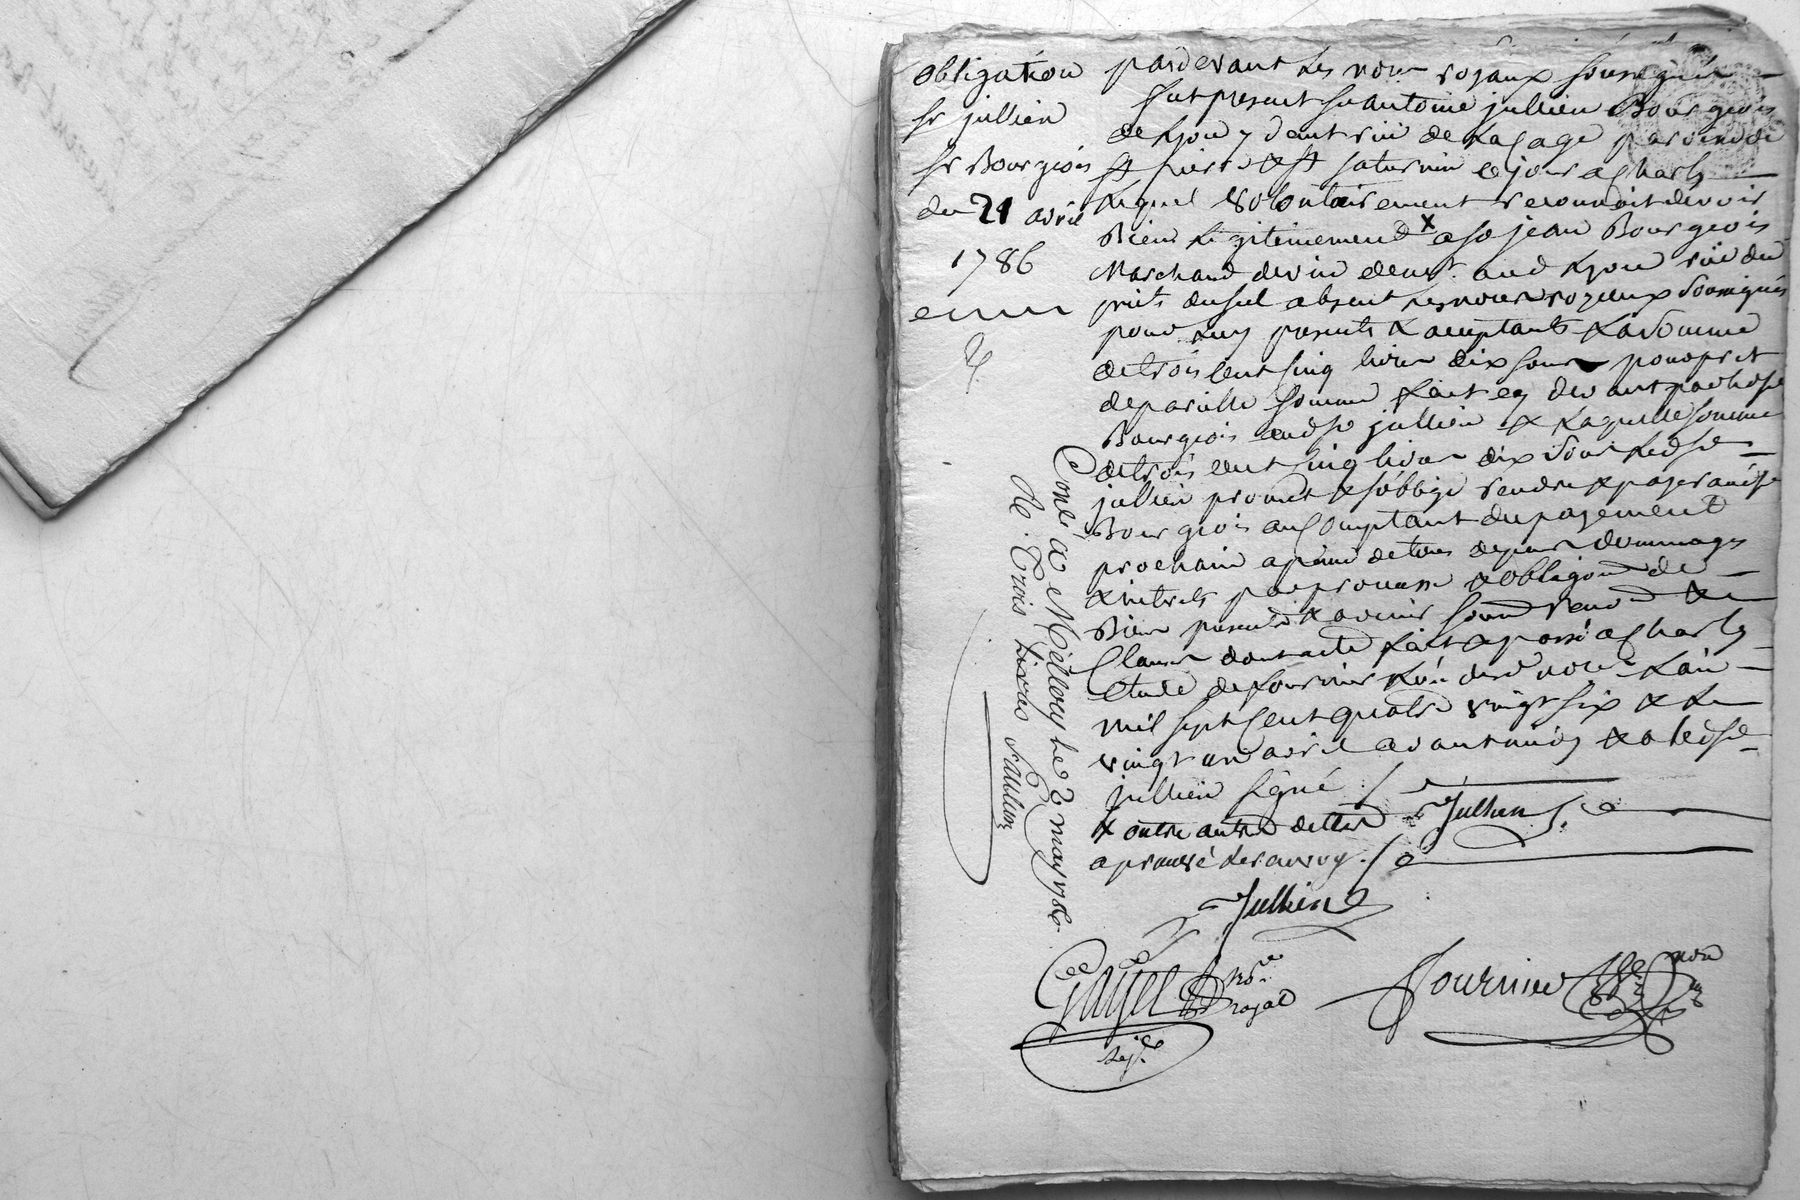 obligation
sr jullien
sr Bourgeois
du 21 avril
1786
pardevant les nores royaux soussignés
fut present sr antoine jullien Bourgeois
de Lyon y dent rüe de la cage paroisse de
st pierre & st saturnin ce jour a Charly
lequel volontairement reconnoit devoir
Bien legitimement x a sr jean Bourgeois
Marchand de vin demt aud Lyon rüe du
puits du sel absent les nores royaux soussignés
pour luy presents & acceptants la somme
de trois cent cinq livres dix sous pour pret
de pareille somme fait cy devant par led sr
Bourgeois aud sr jullien & laquelle somme
de trois cent cinq livres dix sous led sr
jullien promet & s'oblige rendre & payer aud sr
Bourgeois au comptant du payement
prochain a peine de tous depens dommages
& interets par promesse & obligaon de
Biens presents & avenir soumon renon &
Clauses dont acte fait & passé a Charly
etude de fournier l'un desd nores l'an
mil sept cent quatre vingt six & le
vingt un avril avant midy & a led sr
jullien signé
x outre autre dettes
aprouvé le renvoy
Jullien
Jullien
Gayet nore royal
Fournier nore
Conlé à Millery le 2 may 1786
Re. Trois Livres